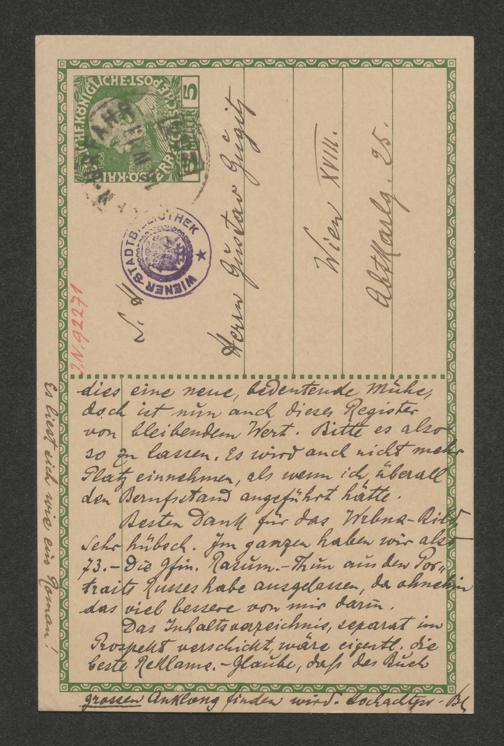 5
WIENER STADTBIBLIOTHEK
J.N. 92271
S. H.
Herrn Gustav Gugitz
Wien XVIII.
25.
dies eine neue, bedeutende Mühe,
doch ist nun auch dieses Register
von bleibendem Wert. Bitte es also
so zu lassen. Es wird auch nicht mehr
Platz einnehmen, als wenn ich überall
den Berufstand angeführt hätte.
Besten Dank für das Bild,
sehr hübsch. Im ganzen haben wir also
73.– Die Gfin. Thun aus den Por-
traits habe ausgelassen, da ohnehin
das viel bessere von mir darin.
Das Inhaltsverzeichnis, separat im
Prospekt verschickt, wäre eigentl. die
beste Reklame. – Glaube, daß das Buch
grossen Anklang finden wird.
Es liest sich wie ein Roman!